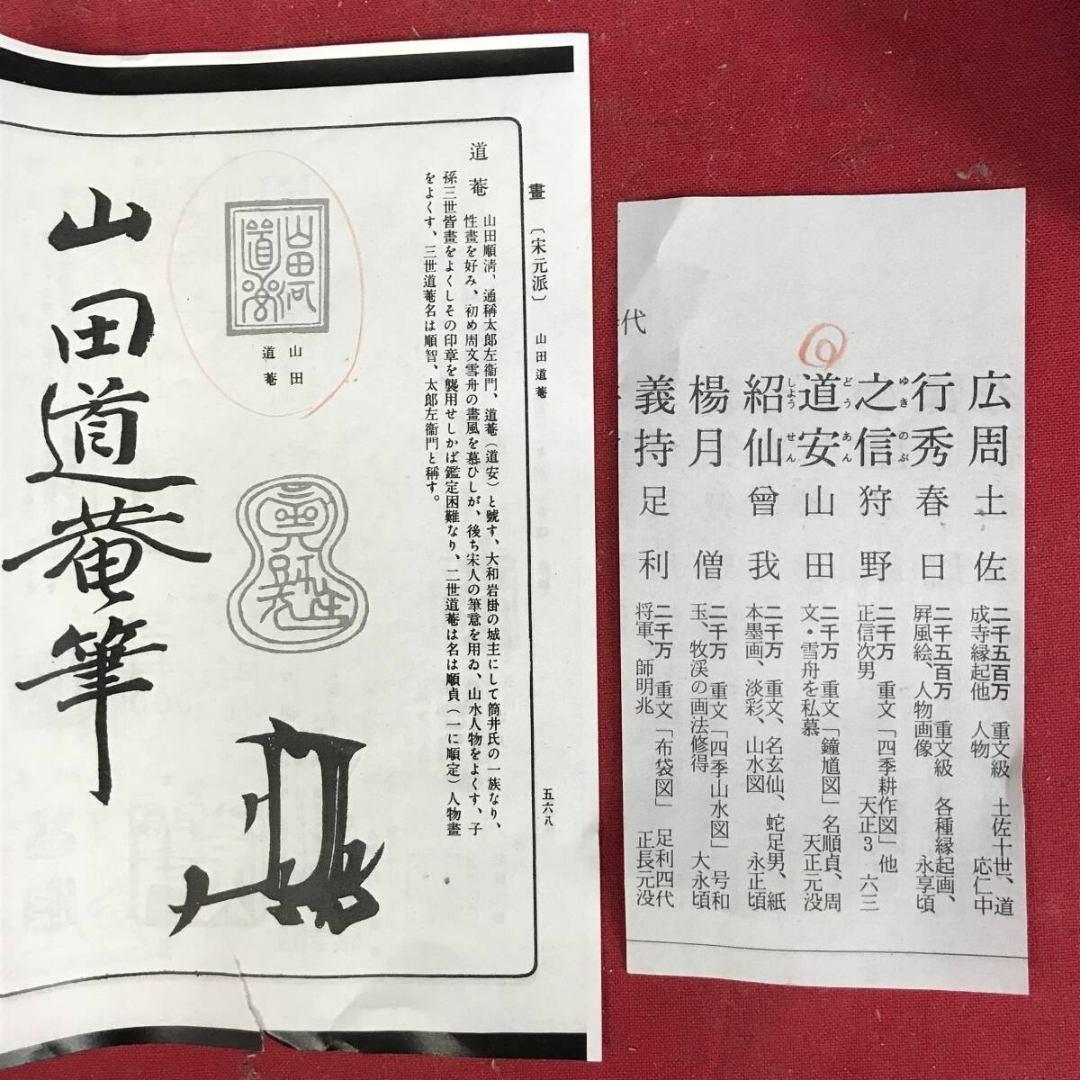 畫〔宋元派〕 山田道菴 五六八
道菴 山田順淸、通稱太郎左衞門、道菴(道安)と號す、大和岩掛の城主にして筒井氏の一族なり、
性畫を好み、初め周文雪舟の畫風を慕ひしが、後ち宋人の筆意を用ゐ、山水人物をよくす、子
孫三世皆畫をよくしその印章を襲用せしかば鑑定困難なり、二世道菴は名は順貞(一に順定)人物畫
をよくす、三世道菴名は順智、太郎左衞門と稱す。
山田
道菴
山田
道菴
山田道菴筆
代
広周 土佐 二千五百万 重文級 土佐十世、道
成寺縁起他 人物 応仁中
行秀 ゆきひで 春日 二千五百万 重文級 各種縁起画、
屛風絵、人物画像 永享頃
之信 ゆきのぶ 狩野 二千万 重文「四季耕作図」他
正信次男 天正3 六三
道安 どうあん 山田 二千万 重文「鐘馗図」名順貞、周
文・雪舟を私慕 天正元没
紹仙 しようせん 曾我 二千万 重文、名玄仙、蛇足男、紙
本墨画、淡彩、山水図 永正頃
楊月 僧 二千万 重文「四季山水図」 号和
玉、牧渓の画法修得 大永頃
義持 足利 二千万 重文「布袋図」 足利四代
将軍、師明兆 正長元没